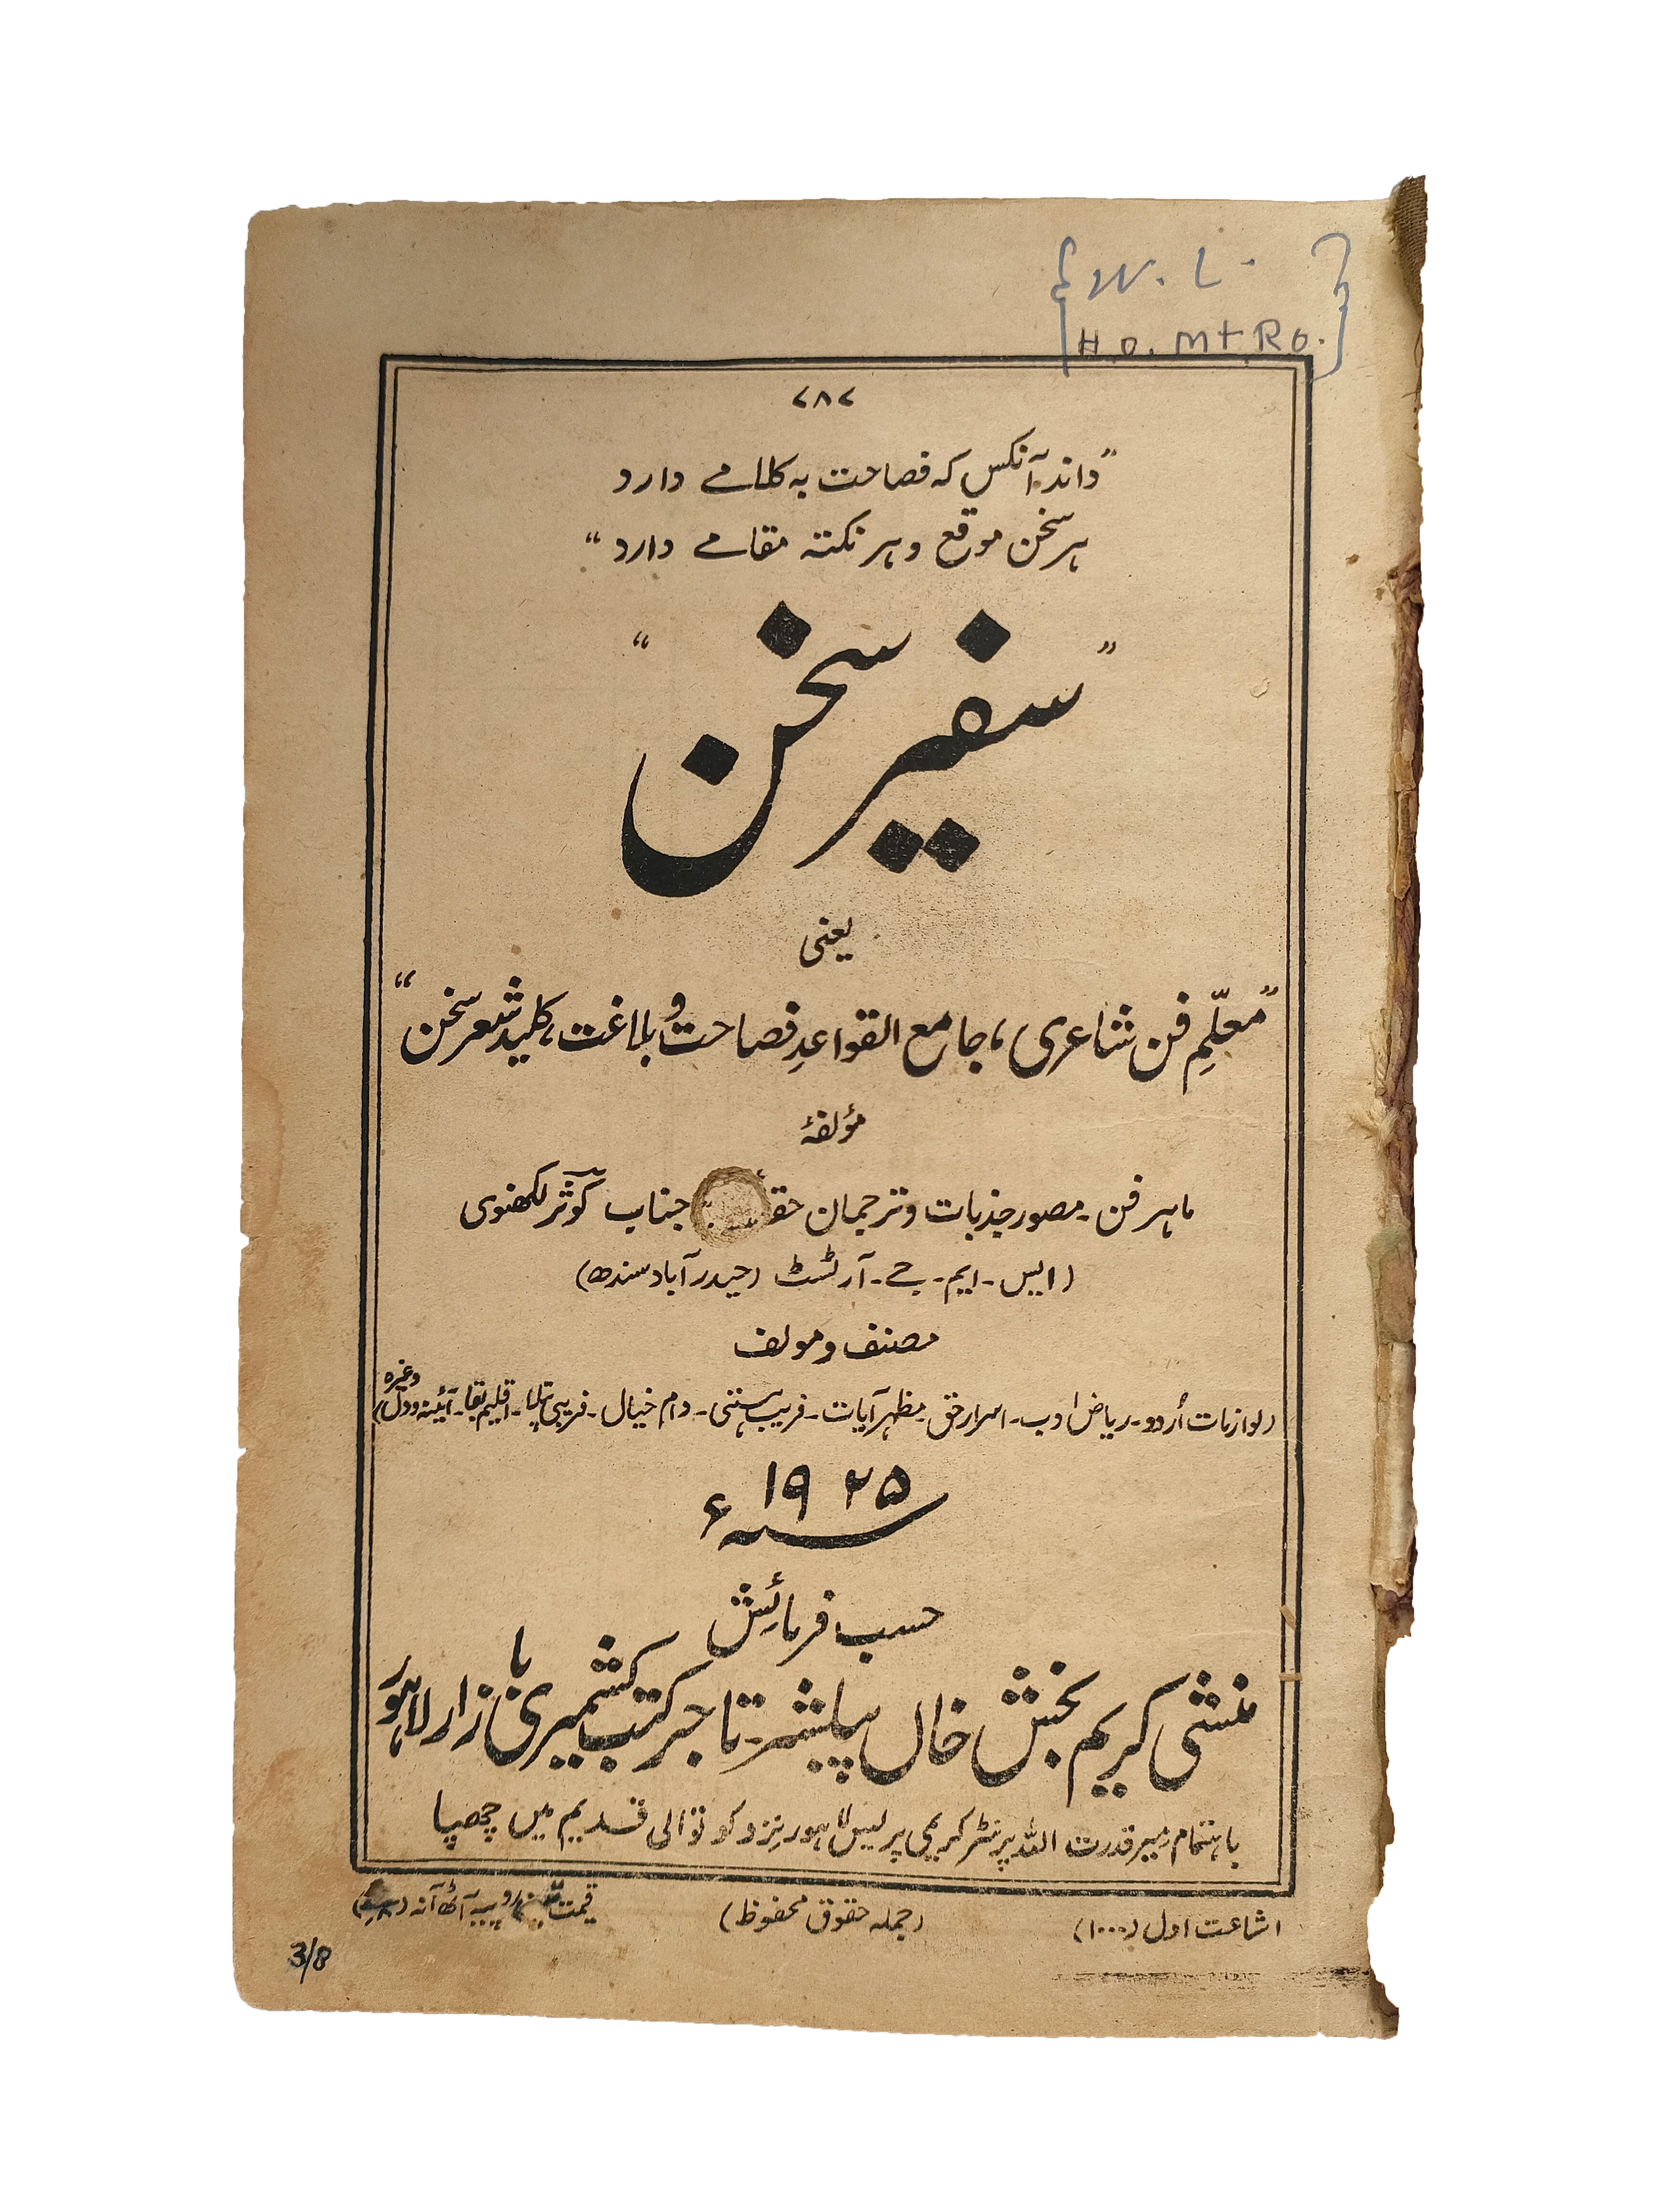 { W. L.
H.O. Mt. Ro. }
۷۸۶
"داند آنکس که فصاحت به کلامے دارد
ہر سخن موقع و ہر نکتہ مقامے دارد"
"سفیر سخن"
یعنی
"معلّمِ فن شاعری، جامع القواعدِ فصاحت و بلاغت، کلید شعر سخن"
مؤلفۂ
ماہر فن۔ مصور جذبات و ترجمان جناب کوثر لکھنوی
(ایس۔ ایم۔ جے۔ آرٹسٹ (حیدر آباد سندھ)
مصنف و مولف
(لوازمات اُردو۔ ریاض ادب۔ اسرار حق۔ مظہر آیات۔ فریب ہستی۔ دام خیال۔ فریبی۔ اقلیم بقا۔ آئینہ دل وغیرہ)
سنہ ۱۹۲۵ء
حسب فرمائش
منشی کریم بخش خاں پبلشر۔ تاجر کتب کشمیری بازار لاہور
باہتمام میر قدرت اللہ پرنٹر کریمی پریس لاہور نزد کوتوالی قدیم میں چھپا
اشاعت اول (۱۰۰۰) (جملہ حقوق محفوظ) قیمت روپیہ آٹھ آنہ
3/8